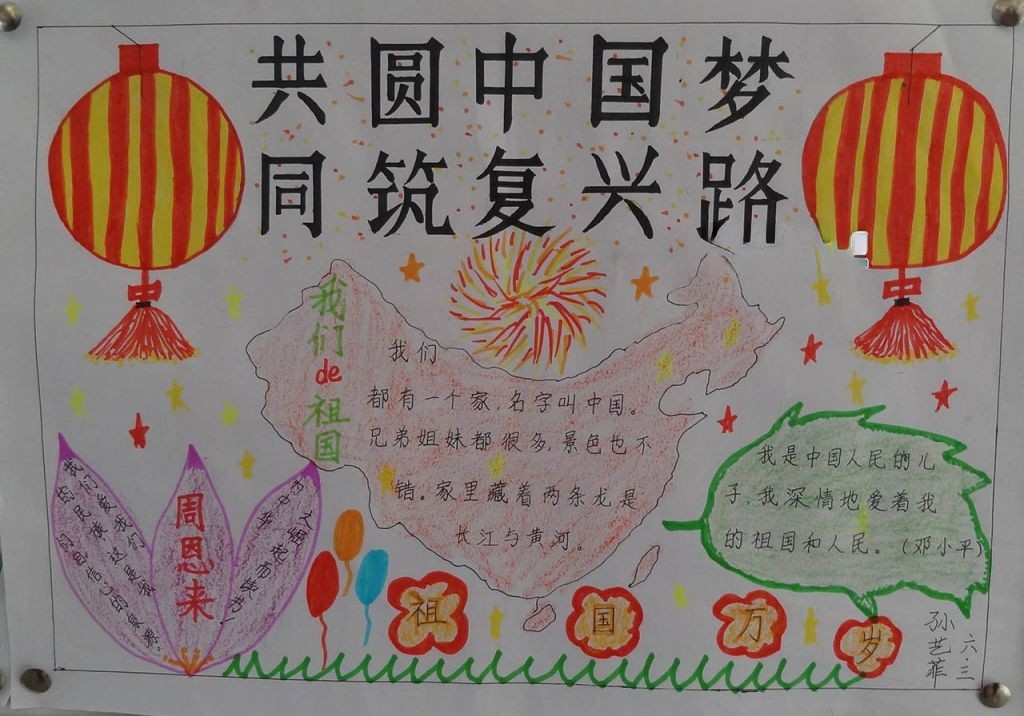 共圆中国梦
同筑复兴路
我们de祖国
我们
都有一个家,名字叫中国。
兄弟姐妹都很多,景色也不
错。家里藏着两条龙是
长江与黄河。
我是中国人民的儿
子,我深情地爱着我
的祖国和人民。（邓小平）
我们爱我们
的民族,这是我
们自信心的泉源。
周恩来
为中华
之崛起而读书!
祖国万岁
孙艺菲
六.三